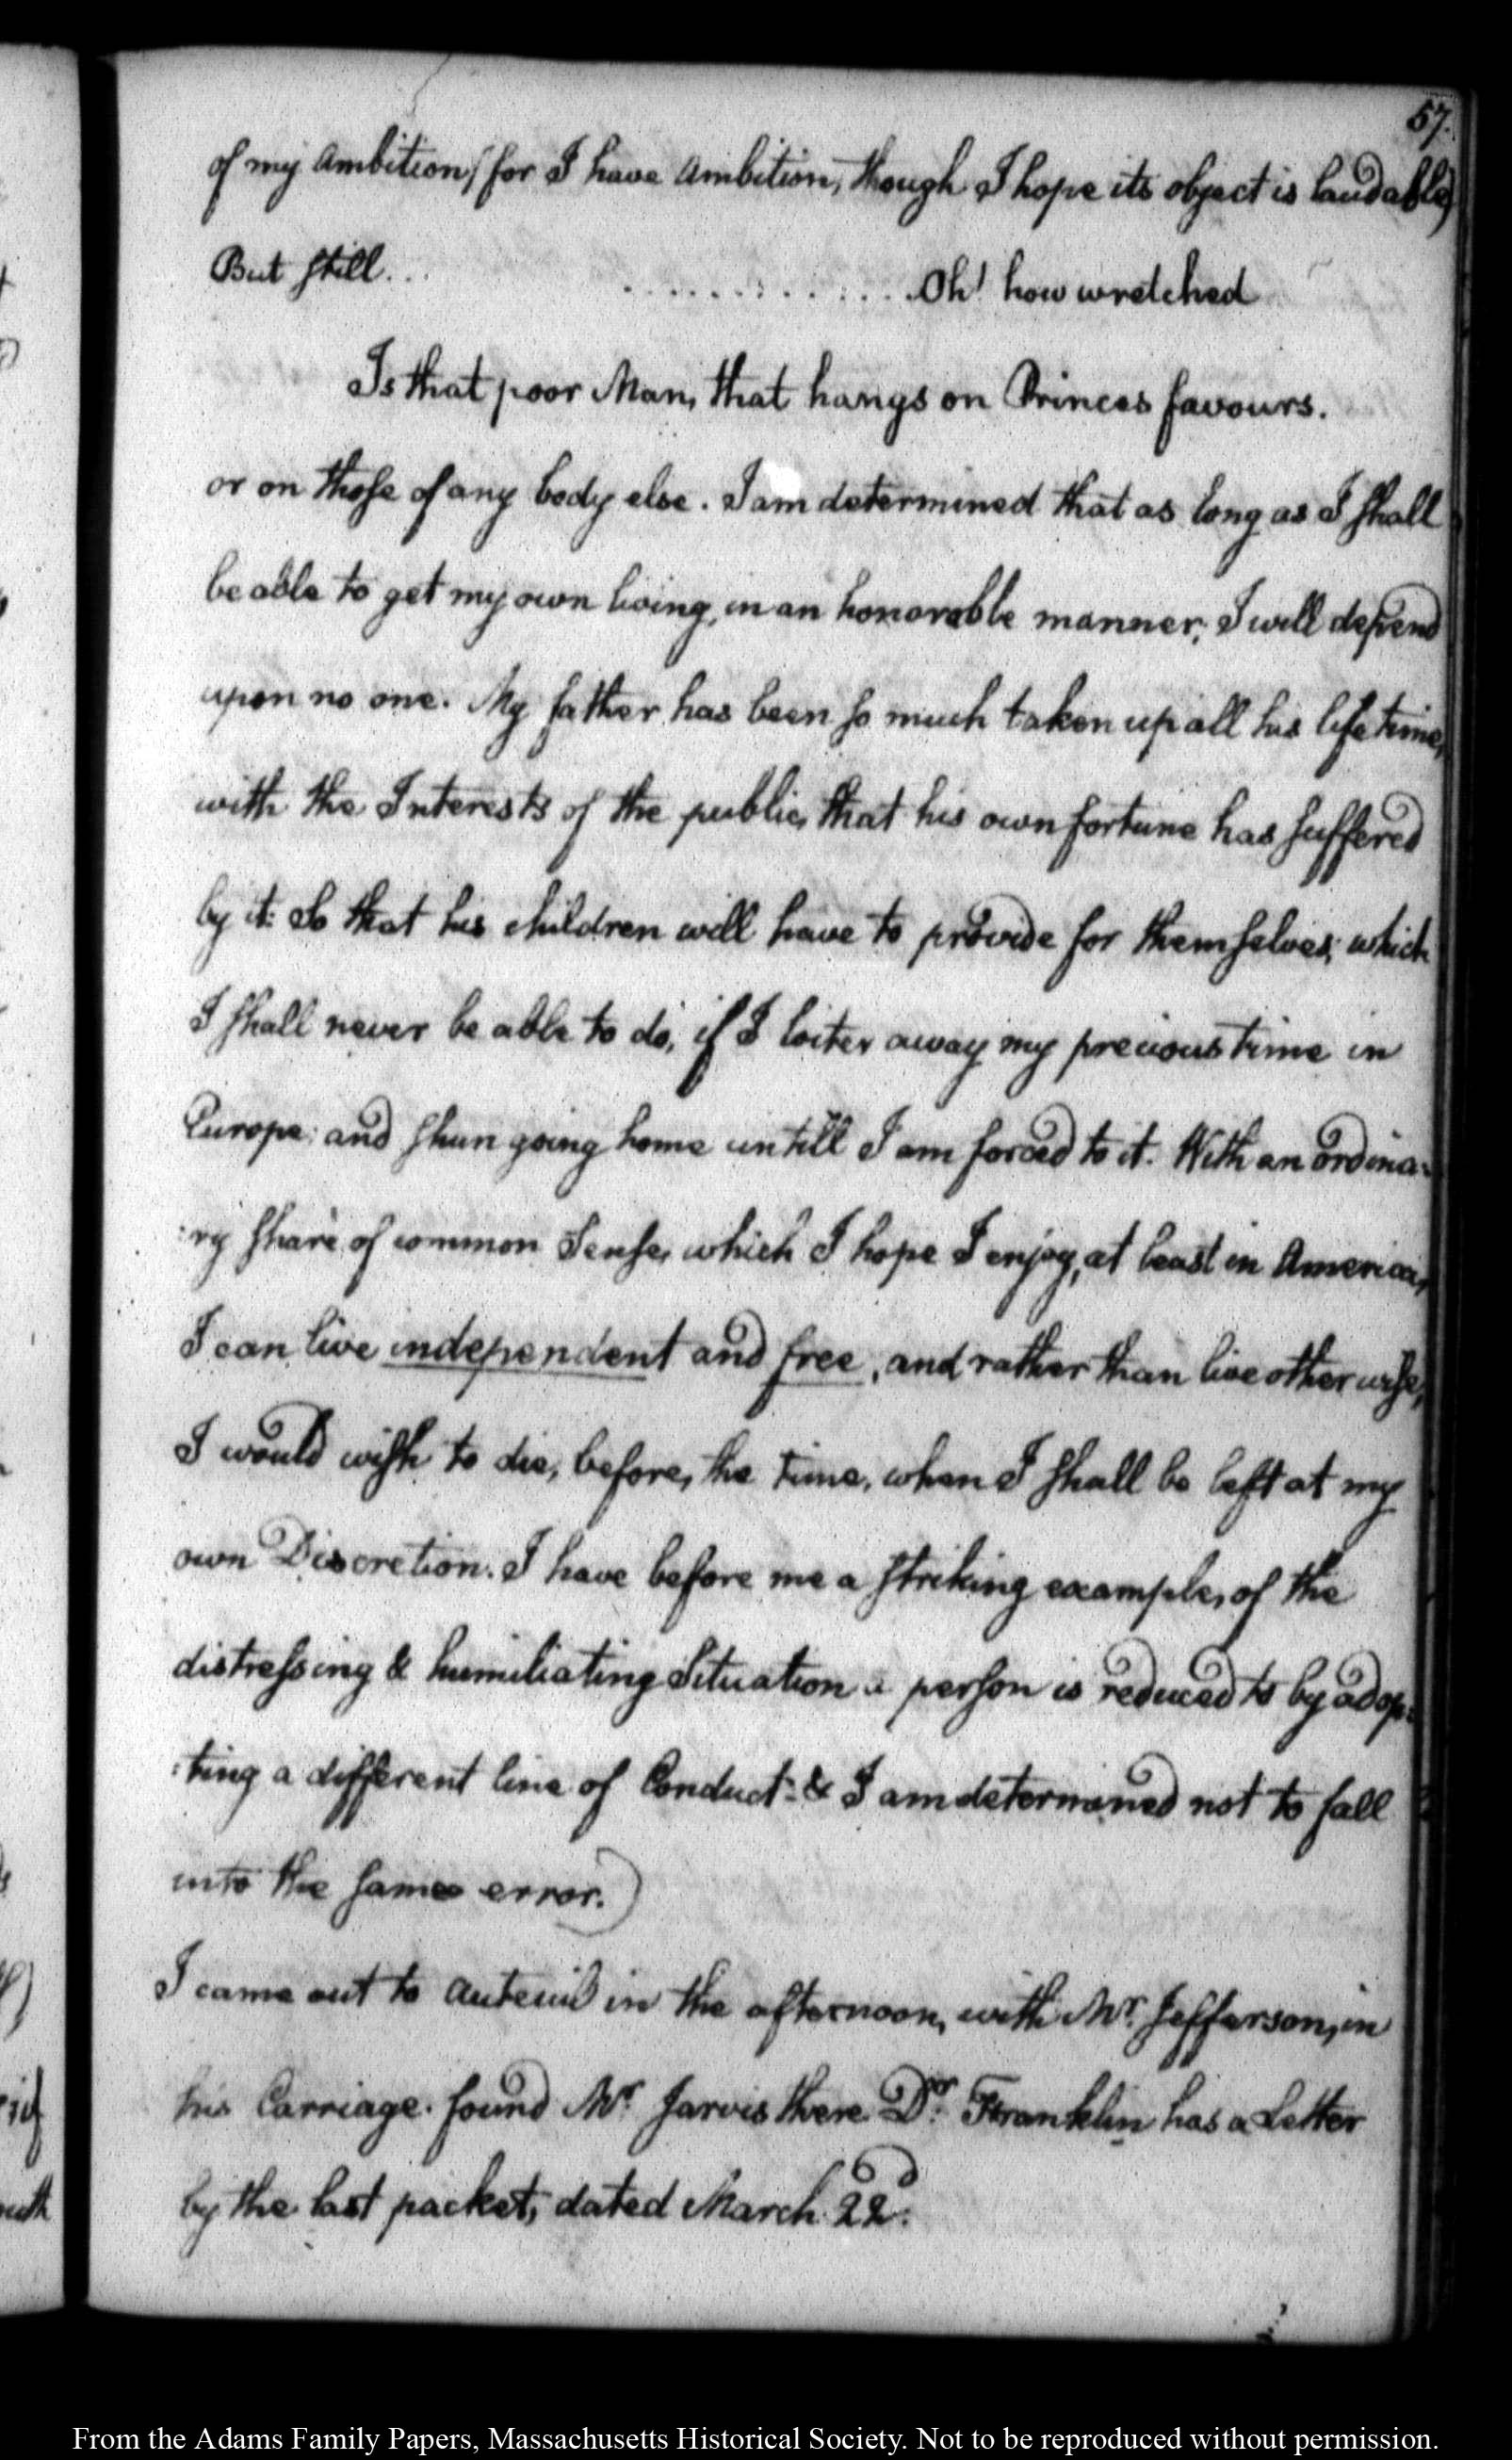 57.
of my Ambition (for I have Ambition, though I hope its object is laudable)
But still... ..............Oh! how wretched
Is that poor Man, that hangs on Princes favours.
or on those of any body else. I am determined that as long as I shall
be able to get my own living, in an honorable manner, I will depend
upon no one. My father has been so much taken up all his lifetime,
with the Interests of the public, that his own fortune has suffered
by it: So that his children will have to provide for themselves; which
I shall never be able to do, if I loiter away my precious time in
Europe: and shun going home untill I am forced to it. With an ordina:
:ry share of common Sense, which I hope I enjoy, at least in America,
I can live independent and free, and rather than live otherwise,
I would wish to die, before, the time, when I shall be left at my
own Discretion. I have before me a striking example, of the
distressing & humiliating Situation a person is reduced to by adop:
:ting a different line of Conduct: & I am determined not to fall
into the same error.)
I came out to Auteuil in the afternoon, with Mr. Jefferson, in
his Carriage. found Mr. Jarvis there. Dr. Franklin has a Letter
by the last packet, dated March 22d.
From the Adams Family Papers, Massachusetts Historical Society. Not to be reproduced without permission.